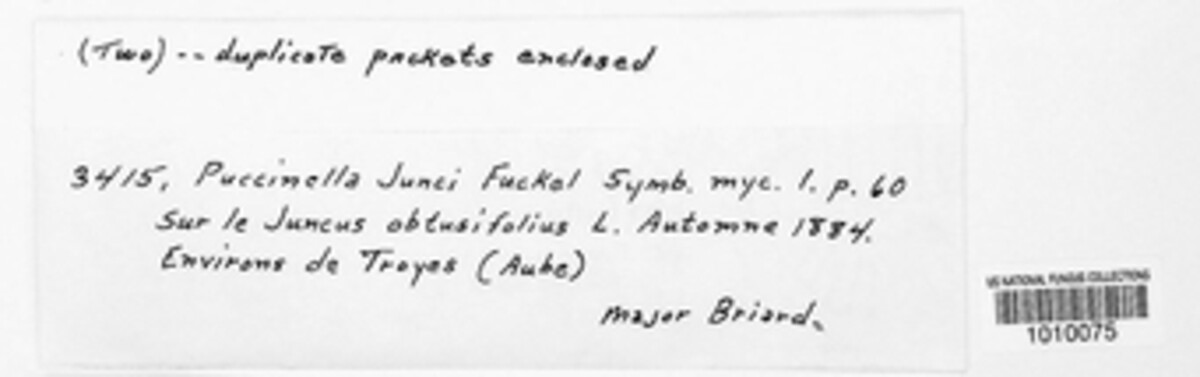 (Two) -- duplicate packets enclosed
3415, Puccinella Junci Fuckel Symb. myc. l. p. 60
Sur le Juncus obtusifolius L. Automne 1884.
Environs de Troyes (Aube)
major Briard.
US NATIONAL FUNGUS COLLECTIONS
1010075